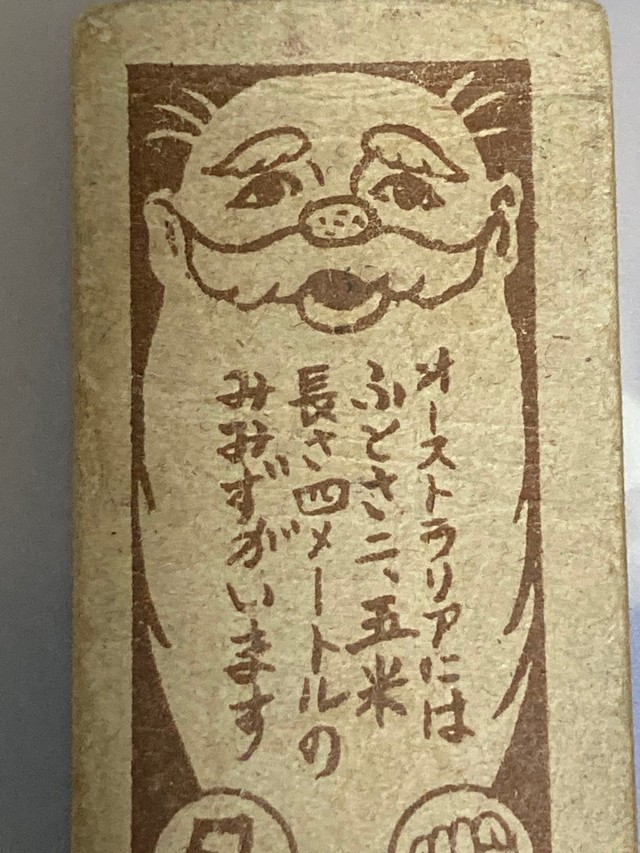 オーストラリアには
ふとさ二、五米
長さ四メートルの
みみずがいます